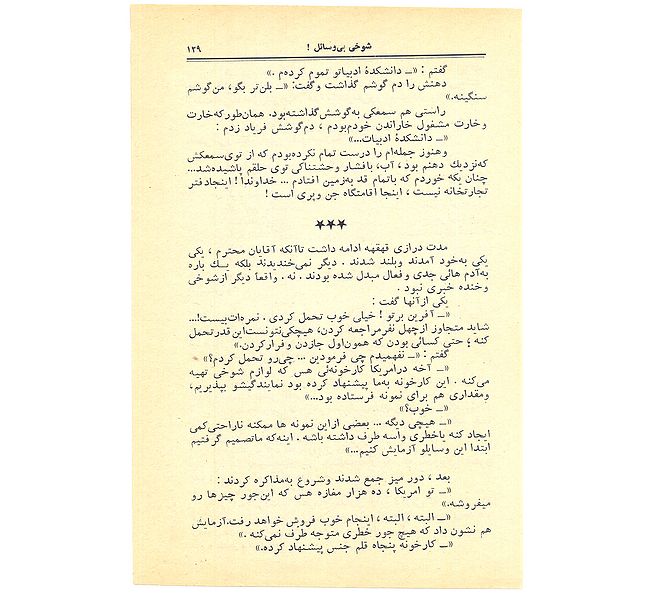 شوخی بی‌وسائل ! ۱۳۹
گفتم : «ـ دانشکدهٔ ادبیاتو تموم کرده‌م .»
دهنش را دم گوشم گذاشت وگفت: «ـ بلن‌تر بگو، من‌گوشم
سنگینه.»
راستی هم سمعکی به‌گوشش‌گذاشته‌بود. همان‌طورکه‌خارت
وخارت مشغول خاراندن خودم‌بودم ، دم‌گوشش فریاد زدم :
«ـ دانشکدهٔ ادبیات...»
وهنوز جمله‌ام را درست تمام نکرده‌بودم که از توی‌سمعکش
که‌نزدیك دهنم بود ، آب، بافشار وحشتناکی توی حلقم پاشیده‌شد...
چنان یکه خوردم که باتمام قد به‌زمین افتادم ... خداوندا ! اینجادفتر
تجارتخانه نیست ، اینجا اقامتگاه جن وپری است !
***
مدت درازی قهقهه ادامه داشت تاآنکه آقایان محترم ، یکی
یکی به‌خود آمدند وبلند شدند . دیگر نمی‌خندیدند بلکه یـك باره
به‌آدم هائی جدی وفعال مبدل شده بودند . نه . واقعاً دیگر ازشوخی
وخنده خبری نبود .
یکی ازآنها گفت :
«ـ آفرین برتو ! خیلی خوب تحمل کردی . نمره‌ات‌بیست!...
شاید متجاوز ازچهل نفرمراجعه کردن، هیچکی‌نتونست‌این‌قدرتحمل
کنه ؛ حتی کسائی بودن که همون‌اول جازدن وفرارکردن.»
گفتم : «ـ نفهمیدم چی فرمودین ... چی‌رو تحمل کردم؟»
«ـ آخه درامریکا کارخونه‌ئی هس که لوازم شوخی تهیه
می‌کنه . این کارخونه به‌ما پیشنهاد کرده بود نمایندگیشو بپذیریم،
ومقداری هم برای نمونه فرستاده بود...»
«ـ خوب؟»
«ـ هیچی دیگه ... بعضی ازاین نمونه ها ممکنه ناراحتی‌کمی
ایجاد کنه یاخطری واسه طرف داشته باشه . اینه‌که ماتصمیم گرفتیم
ابتدا این وسایلو آزمایش کنیم...»
بعد ، دور میز جمع شدند وشروع به‌مذاکره کردند :
«ـ تو امریکا ، ده هزار مغازه هس که این‌جور چیزها رو
میفروشه.»
«ـ البته ، البته ، اینجام خوب فروش خواهد رفت.آزمایش
هم نشون داد که هیچ جور خطری متوجه طرف نمی‌کنه .»
«ـ کارخونه پنجاه قلم جنس پیشنهاد کرده.»